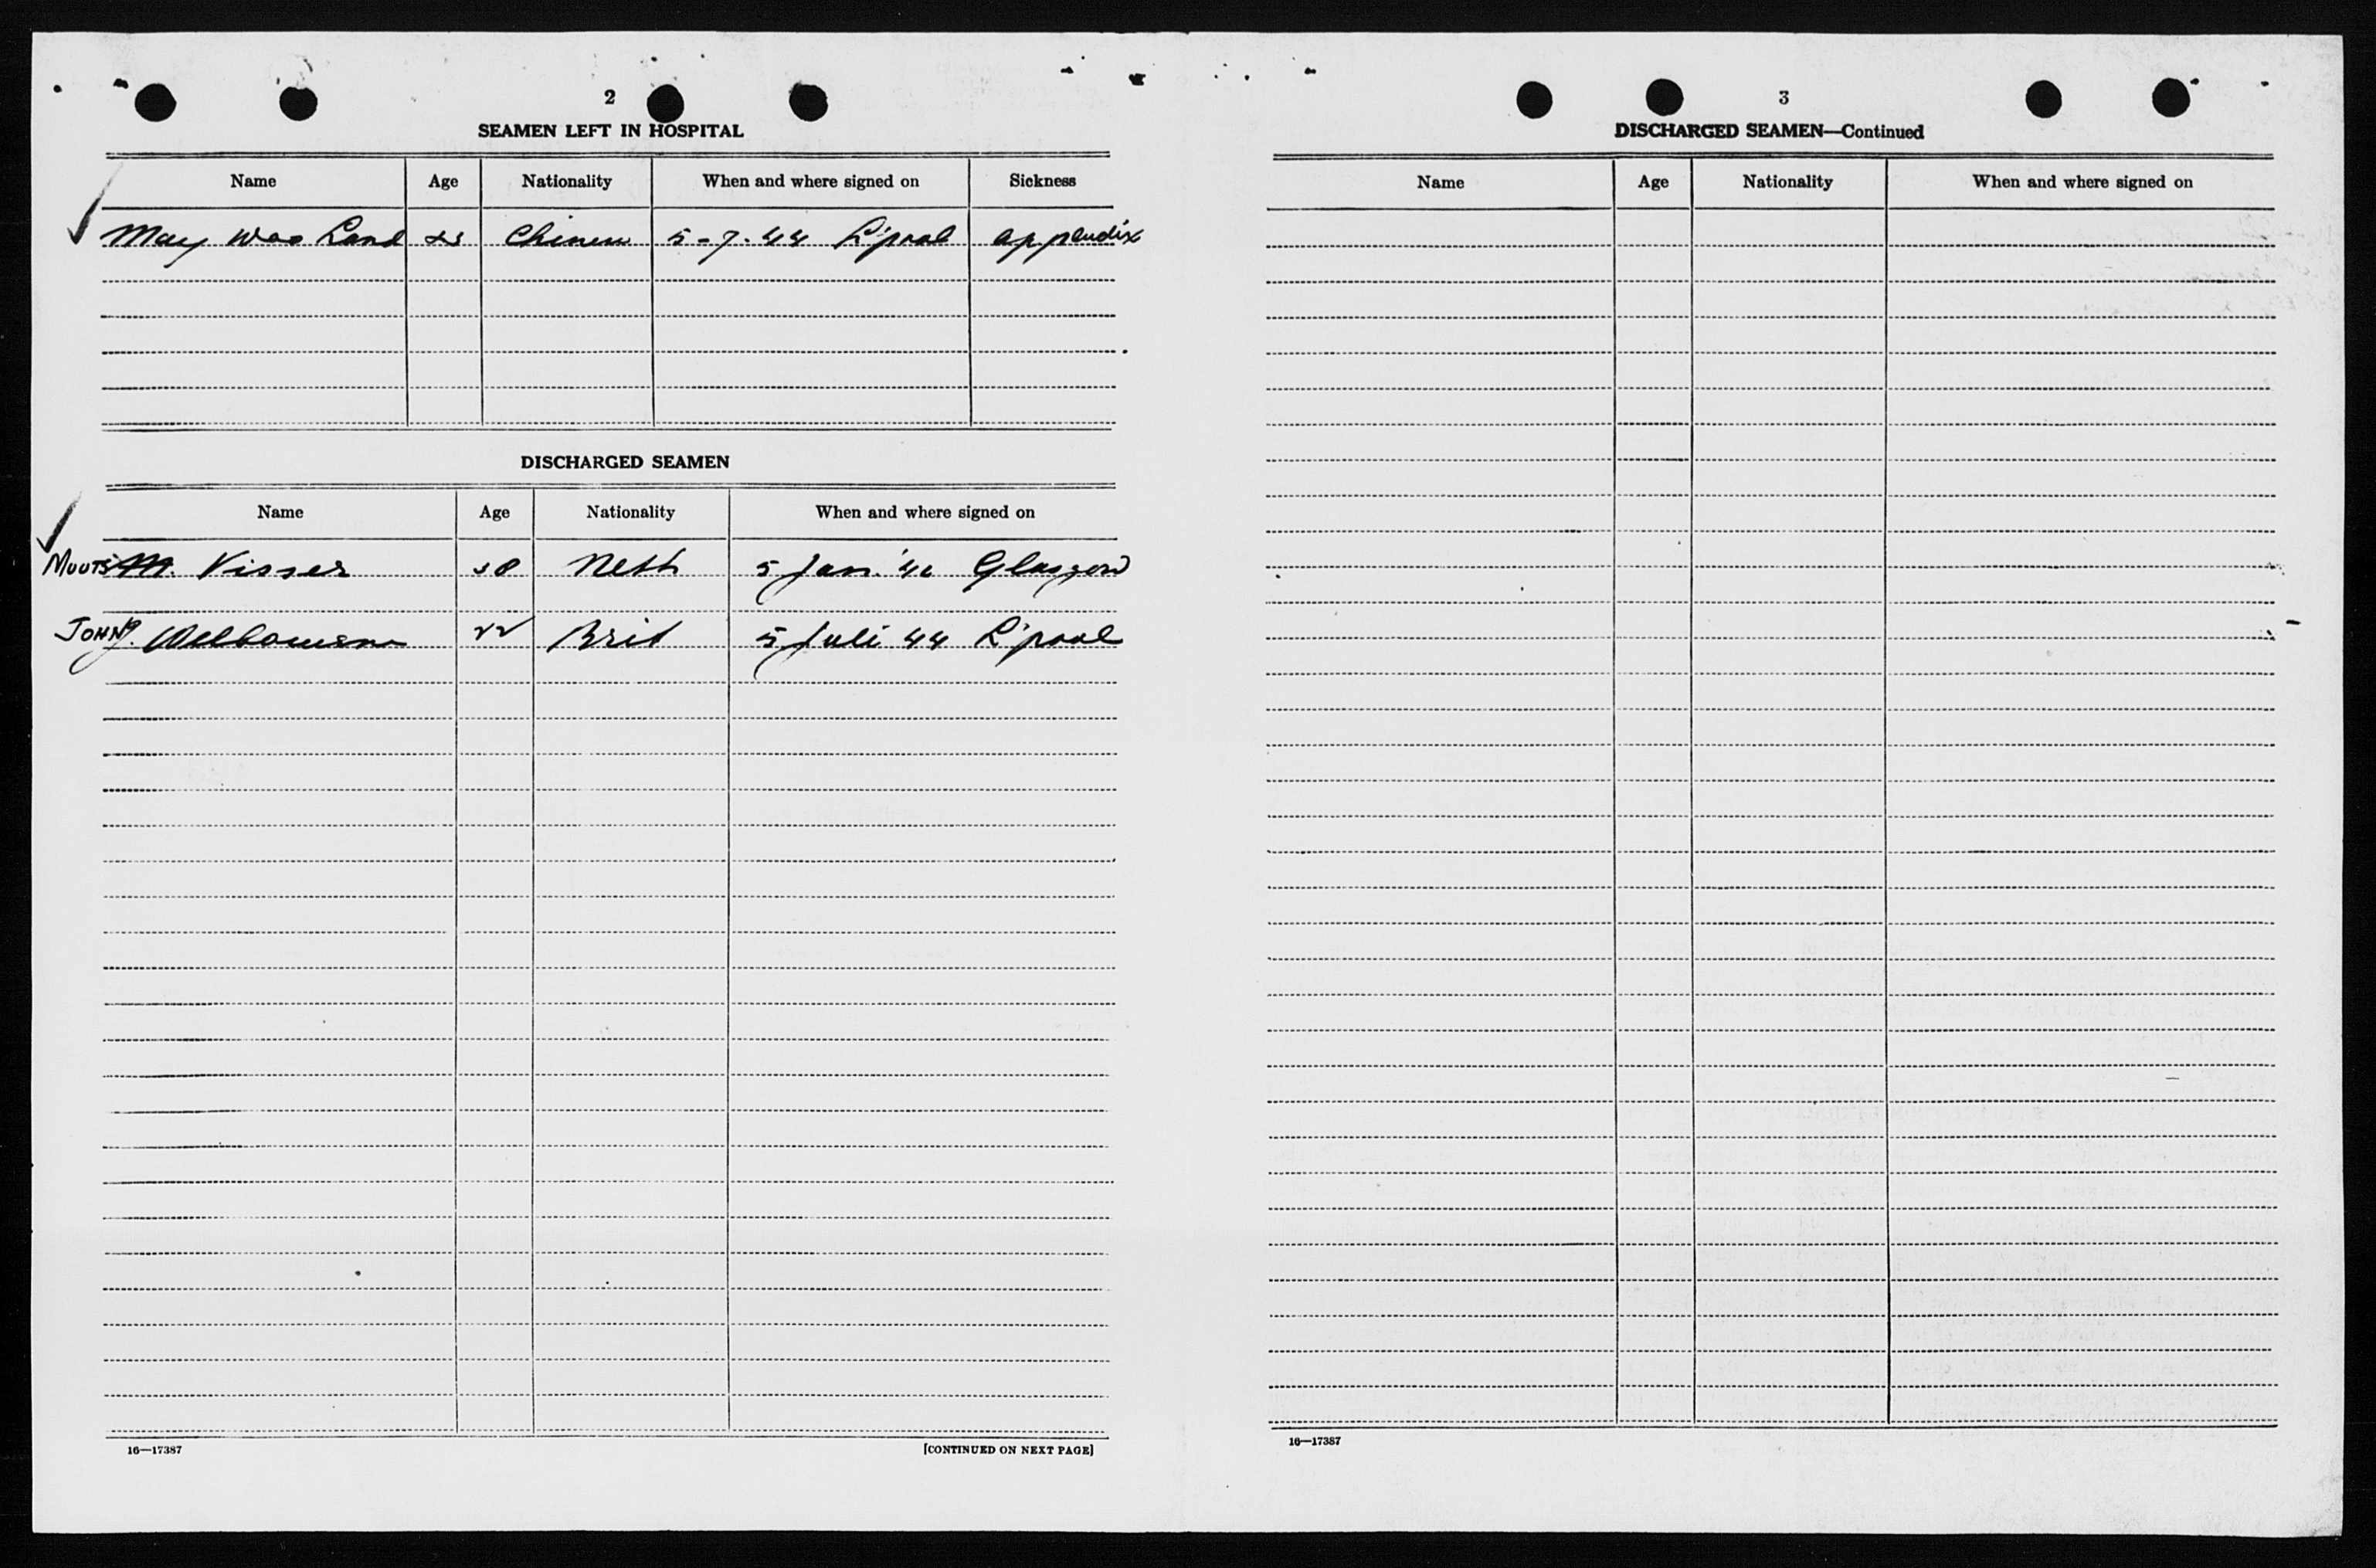 2
SEAMEN LEFT IN HOSPITAL
Name Age Nationality When and where signed on Sickness
May Woo Land Chinese 5-7-44 L'pool appendix
DISCHARGED SEAMEN
Name Age Nationality When and where signed on
M. Visser Neth 5 Jan. Glasgow
JOHN J. 22 Brit 5 Juli 44 L'pool
16—17387 [CONTINUED ON NEXT PAGE]
3
DISCHARGED SEAMEN—Continued
Name Age Nationality When and where signed on
16—17387